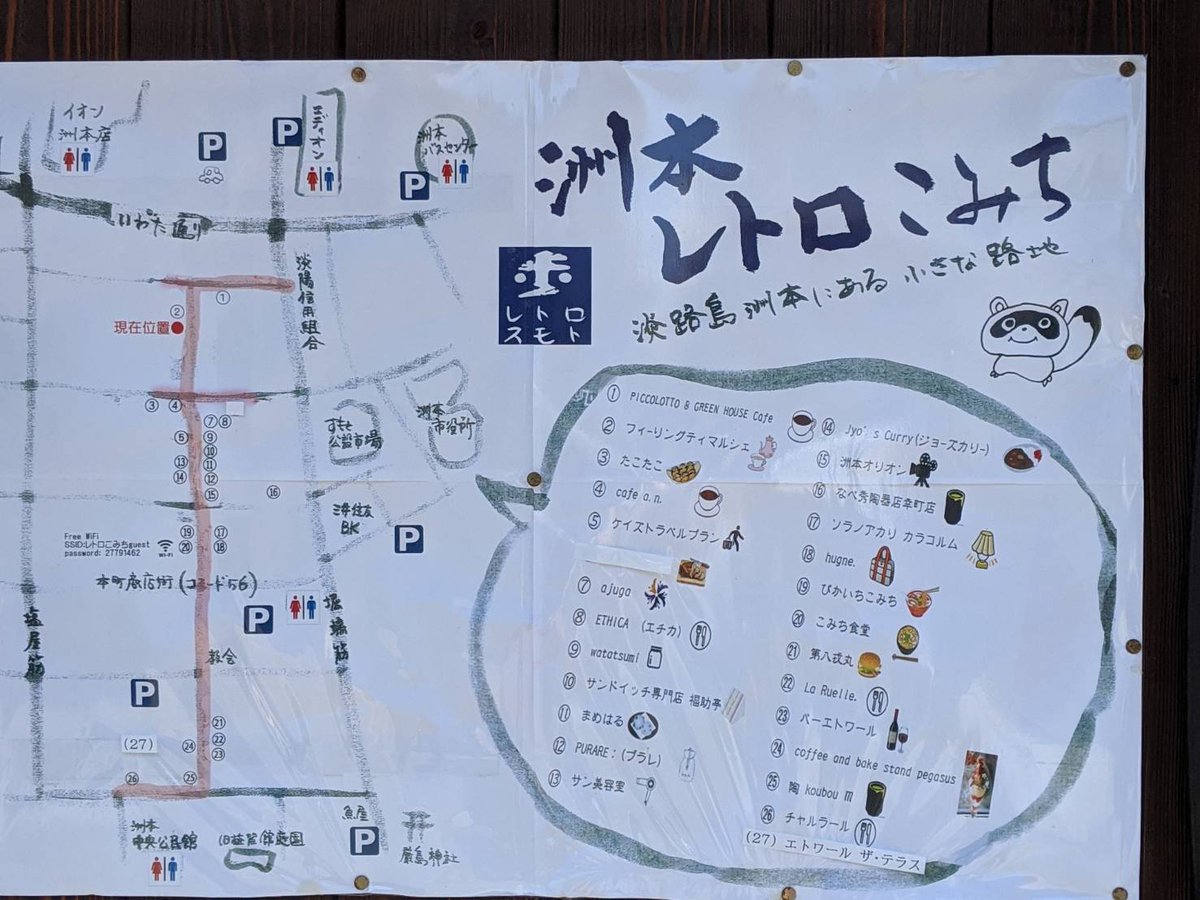 洲本
レトロこみち
淡路島洲本にある 小さな路地
レトロ
スモト
イオン
洲本店
P
P
エディオン
洲本
バスセンター
P
いわた通り
淡陽信用組合
①
②
現在位置
③ ④
⑦ ⑧
⑤
⑨
⑩
⑬
⑪
⑭
⑫
⑮
⑯
すもと
公設市場
洲本
市役所
三井住友
BK
P
Free WiFi
SSID:レトロこみちguest
password: 27791462
Wi-Fi
⑲
⑳
⑰
⑱
本町商店街(コモード56)
P
塩屋筋
堀端筋
教会
P
(27)
㉑
㉒
㉓
㉔
㉖
㉕
洲本
中央公民館
庭園
魚屋
P
厳島神社
① PICCOLOTTO & GREEN HOUSE Cafe
② フィーリングティマルシェ
③ たこたこ
④ cafe a.n.
⑤ ケイズトラベルプラン
⑦ ajuga
⑧ ETHICA (エチカ)
⑨ watatsumi
⑩ サンドイッチ専門店 福助亭
⑪ まめはる
⑫ PURARE:(プラレ)
⑬ サン美容室
⑭ Jyo's Curry(ジョーズカリー)
⑮ 洲本オリオン
⑯ なべ秀陶器店幸町店
⑰ ソラノアカリ カラコルム
⑱ hugne.
⑲ ぴかいちこみち
⑳ こみち食堂
㉑ 第八戎丸
㉒ La Ruelle.
㉓ バーエトワール
㉔ coffee and bake stand pegasus
㉕ 陶 koubou m
㉖ チャルラール
(27) エトワール ザ・テラス